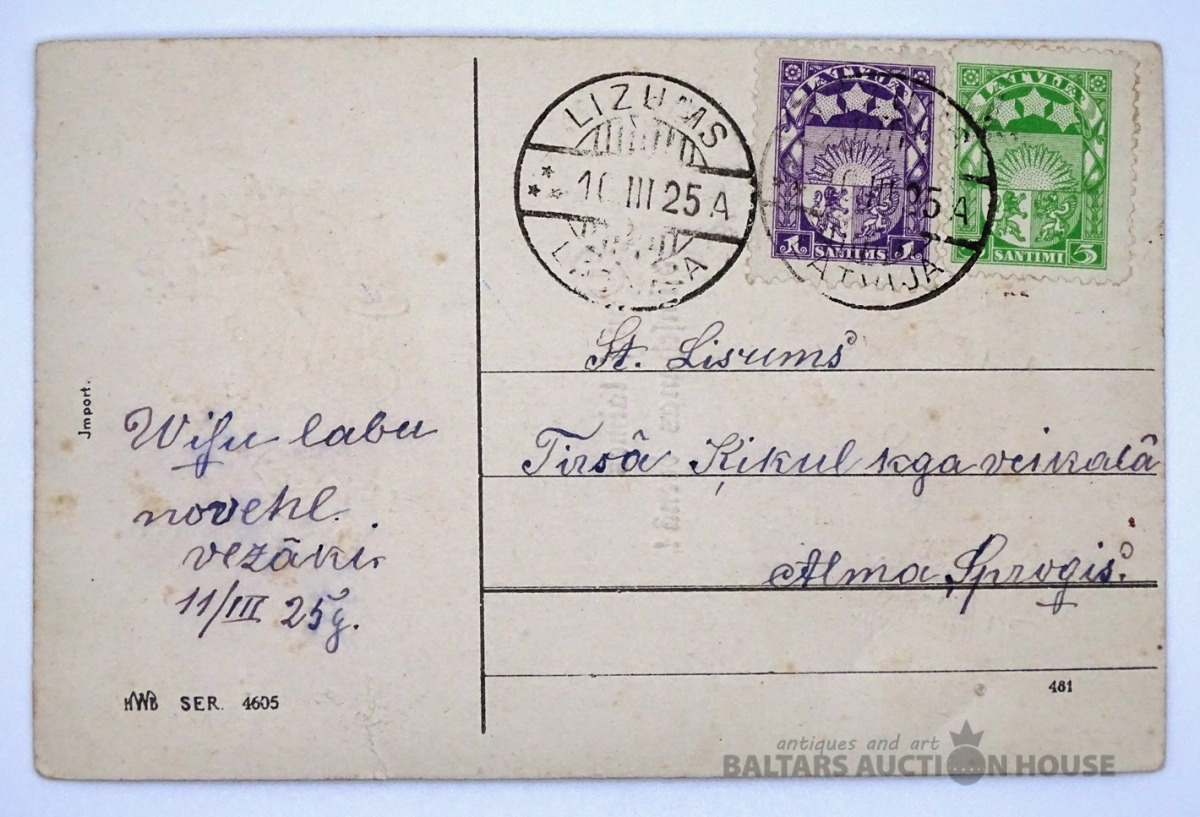 LIZUMS
16 III 25 A
LATVIJA
LATVIJA
1 SANTIMS 1
LATVIJA
SANTIMI 3
25 A
LATVIJA
St. Lisums
Tirsâ Ķikul kga veikalâ
Alma Sprogis.
Jmport.
Wiſu labu
novehl.
vezâki
11/III 25g.
HWB SER. 4605
461
antiques and art
BALTARS AUCTION HOUSE